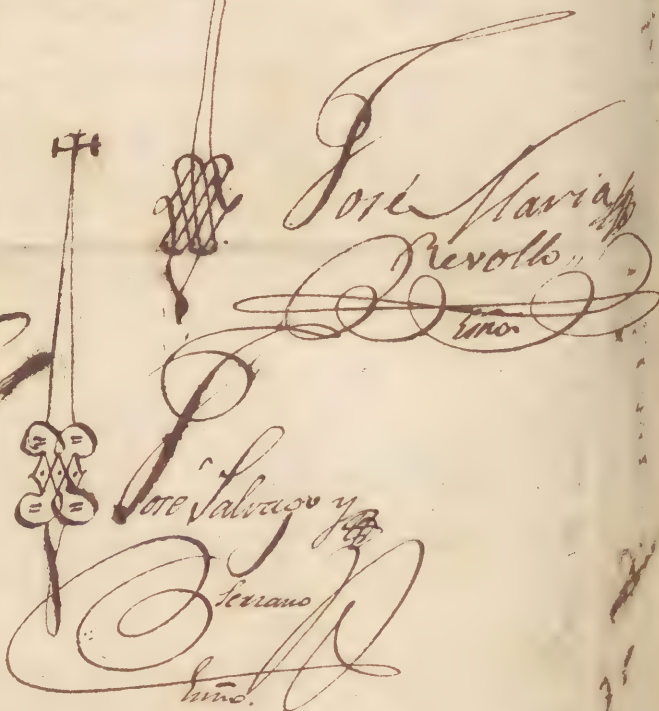 José Maria
Revollo
José Salvago y
Serrano